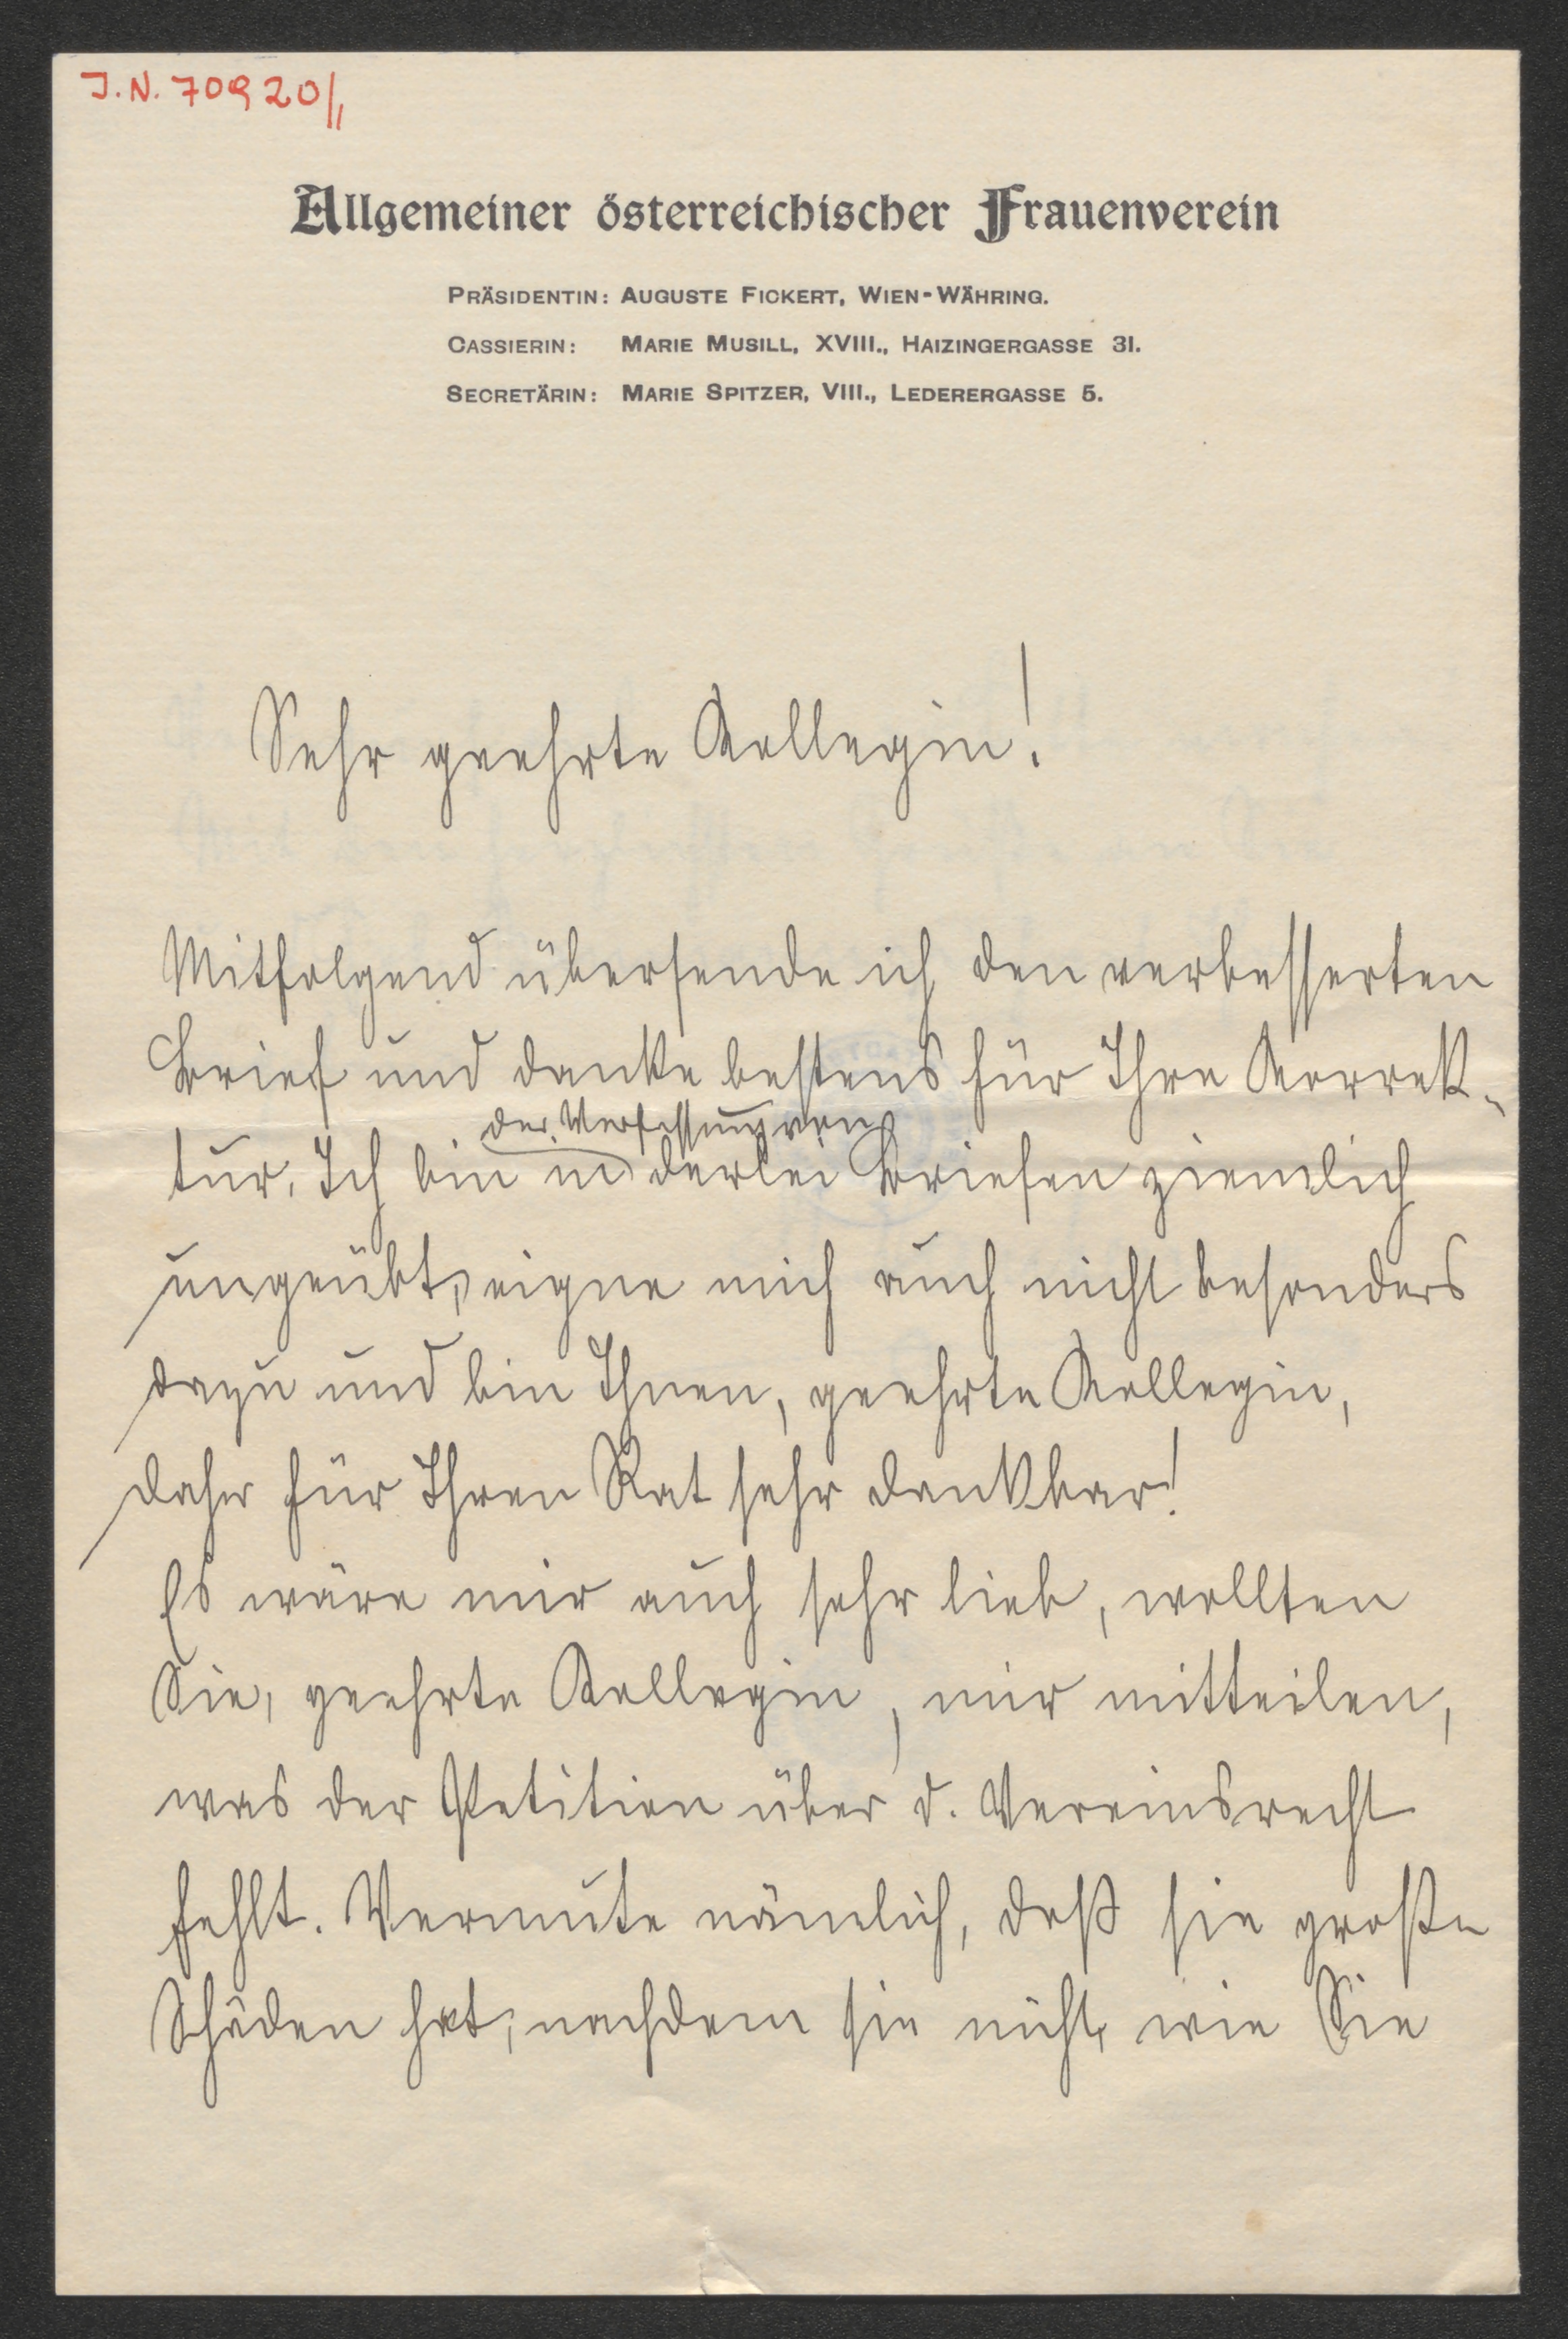 J.N. 70920/1
Allgemeiner österreichischer Frauenverein
PRÄSIDENTIN: AUGUSTE FICKERT, WIEN-WÄHRING.
CASSIERIN: MARIE MUSILL, XVIII., HAIZINGERGASSE 31.
SECRETÄRIN: MARIE SPITZER, VIII., LEDERERGASSE 5.
Sehr geehrte Kollegin!
Mitfolgend übersende ich den verbesserten
Brief und danke bestens für Ihre Korrek-
der Verfassung von
tur. Ich bin in derlei Briefen ziemlich
ungeübt, eigne mich auch nicht besonders
dazu und bin Ihnen, geehrte Kollegin,
daher für Ihren Rat sehr dankbar!
Es wäre mir auch sehr lieb, wollten
Sie, geehrte Kollegin, mir mitteilen,
was der Petition über d. Vereinsrecht
fehlt. Vermute nämlich, daß sie große
Schäden hat, nachdem sie nicht, wie Sie